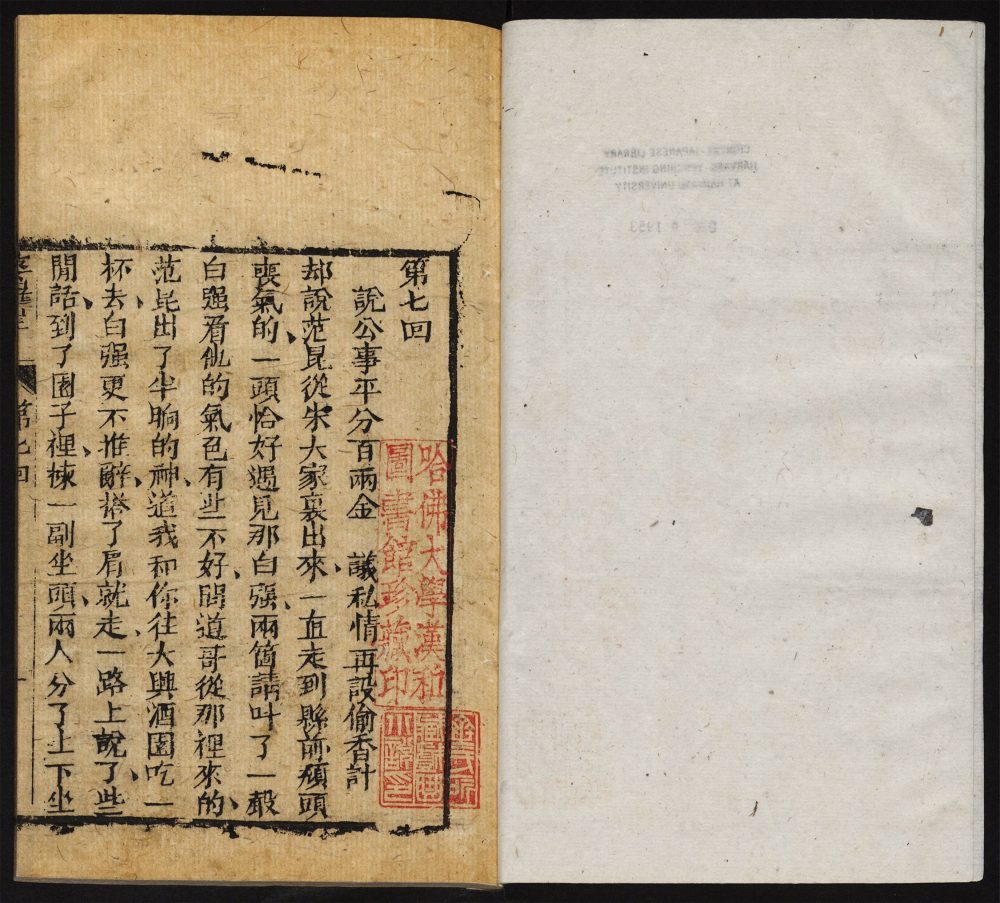 CHINESE-JAPANESE LIBRARY
HARVARD-YENCHING INSTITUTE
AT HARVARD UNIVERSITY
1953
第七回
說公事平分百兩金　議私情再設偷香計
却說范昆從宋大家裏出來、一直走到縣前頽頭
喪氣的、一頭恰好遇見那白强、兩箇請叫了一聲
白强看他的氣色有些不好、問道哥從那裡來的、
范昆出了半晌的神、道我和你往大興酒園吃一
杯去、白强更不推辭、搭了肩就走、一路上說了些
閒話、到了園子裡、揀一副坐頭、兩人分了上下坐
第七回
哈佛大學漢和
圖書館珍藏印